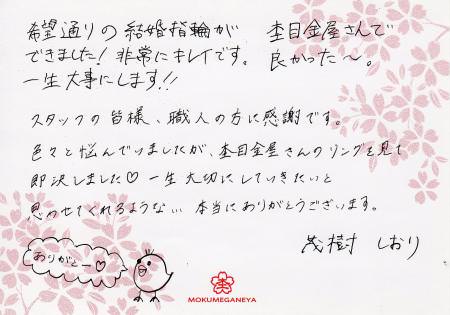 希望通りの結婚指輪が
できました!非常にキレイです。
一生大事にします!!
杢目金屋さんで
良かった〜。
スタッフの皆様、職人の方に感謝です。
色々と悩んでいましたが、杢目金屋さんのリングを見て
即決しました♡一生大切にしていきたいと
思わせてくれるような… 本当にありがとうございます。
茂樹 しおり
ありがとー♡
MOKUMEGANEYA